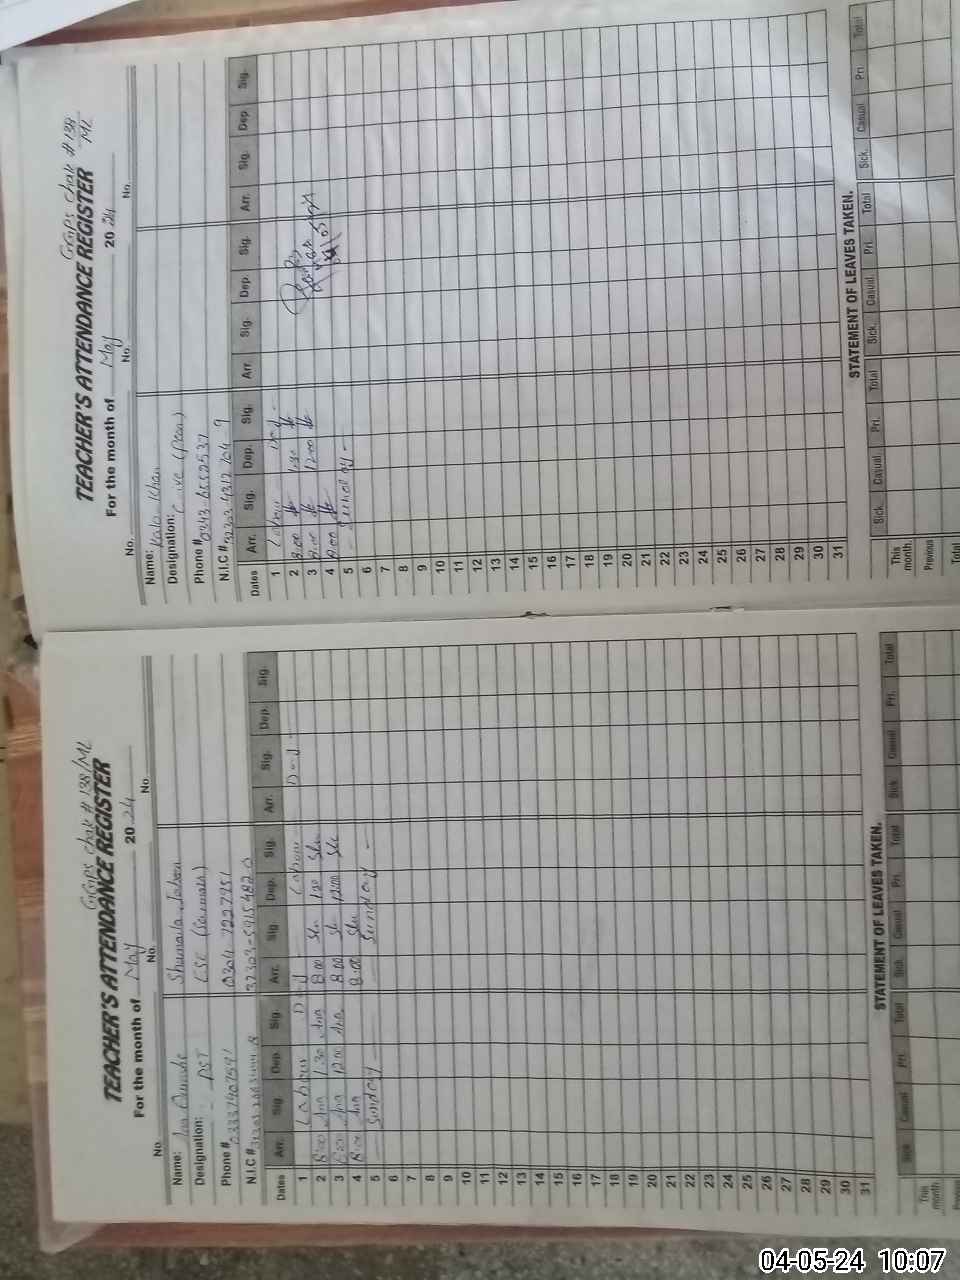 GGPS Chak # 138/ML
TEACHER'S ATTENDANCE REGISTER
For the month of May 2024
No. No. No.
Name: Shumaila
Designation: PST ESE
Phone # 03337407591 0304 7227951
N.I.C # 32303-5915482-0
Dates Arr. Sig. Dep. Sig. Arr. Sig. Dep. Sig. Arr. Sig. Dep. Sig.
1 Labour Day Labour Day
2 8:00 1:30 8:00 1:30
3 8:00 12:00 8:00 12:00
4 8:00 8:00
5 — Sunday — — Sunday —
6
7
8
9
10
11
12
13
14
15
16
17
18
19
20
21
22
23
24
25
26
27
28
29
30
31
STATEMENT OF LEAVES TAKEN.
Sick Casual Pri. Total Sick. Casual Pri. Total Sick Casual Pri. Total
This month.
GGPS Chak # 138/ML
TEACHER'S ATTENDANCE REGISTER
For the month of May 2024
No. No. No.
Name: Kala Khan
Designation:
Phone #
N.I.C #
Dates Arr. Sig. Dep. Sig. Arr. Sig. Dep. Sig. Arr. Sig. Dep. Sig.
1 Labour Day -
2 8:00 1:30
3 8:00 12:00
4 8:00
5 - Sunday -
6
7
8
9
10
11
12
13
14
15
16
17
18
19
20
21
22
23
24
25
26
27
28
29
30
31
STATEMENT OF LEAVES TAKEN.
Sick. Casual. Pri. Total Sick. Casual. Pri. Total Sick. Casual Pri Total
This month.
Previous
Total
04-05-24 10:07